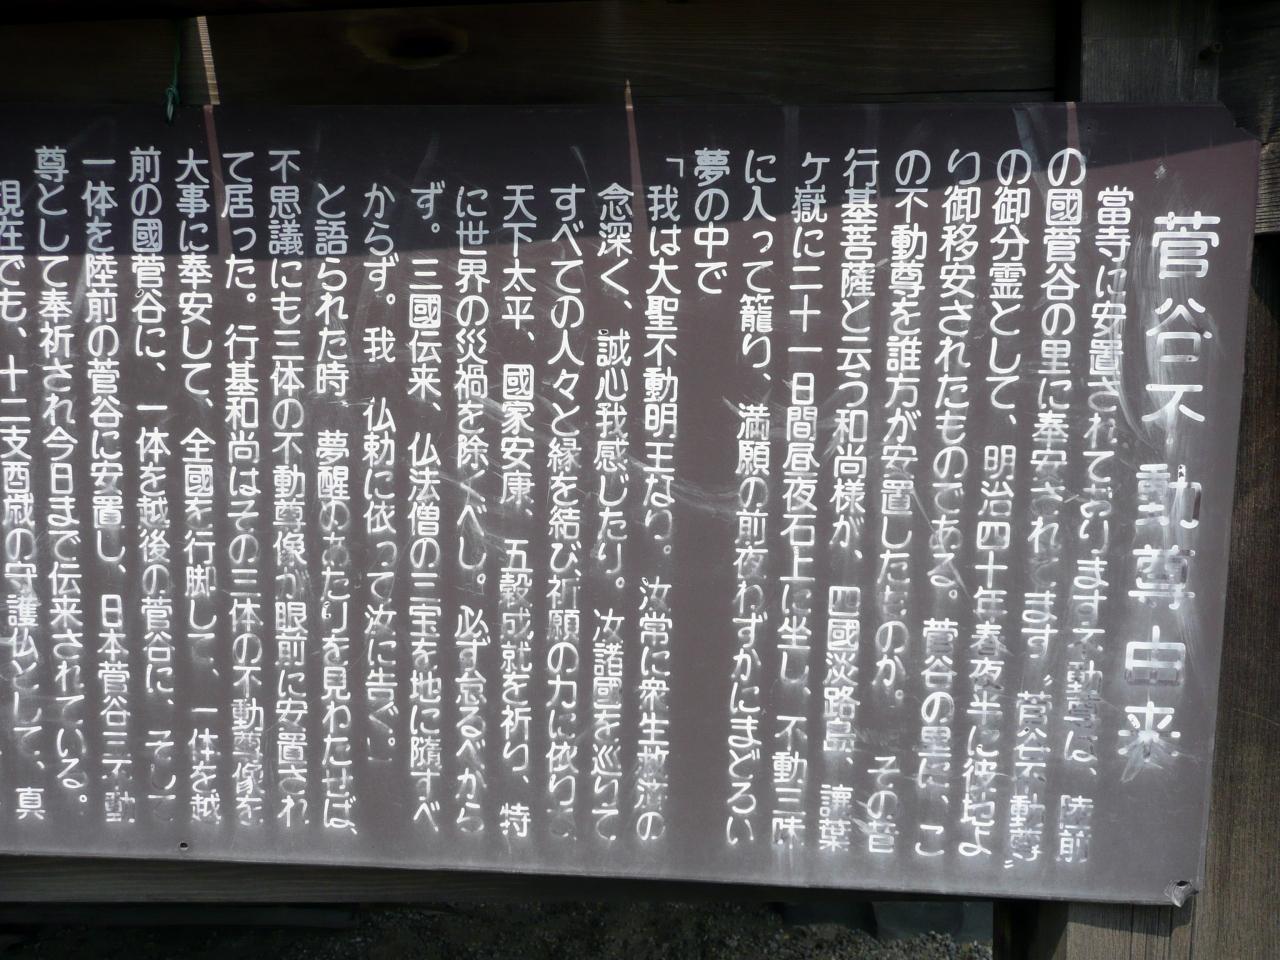 菅谷不動尊由来
當寺に安置されております不動尊は、陸前
の國菅谷の里に奉安されてます〝菅谷不動尊〟
の御分霊として、明治四十年春夜半に彼地よ
り御移安されたものである。菅谷の里に、こ
の不動尊を誰方が安置したものか。その昔
行基菩薩と云う和尚様が、四國淡路島、讓葉
ヶ嶽に二十一日間昼夜石上に坐し、不動三昧
に入って籠り、満願の前夜わずかにまどろい
夢の中で
「我は大聖不動明王なり。汝常に衆生救済の
念深く、誠心我感じたり。汝諸國を巡りて
すべての人々と縁を結び祈願の力に依り
天下太平、國家安康、五穀成就を祈り、特
に世界の災禍を除くべし。必ず怠るべから
ず。三國伝来、仏法僧の三宝を地に隋すべ
からず。我 仏勅に依って汝に告ぐ」
と語られた時、夢醒めあたりを見わたせば、
不思議にも三体の不動尊像が眼前に安置され
て居った。行基和尚はその三体の不動尊像を
大事に奉安して、全國を行脚して、一体を越
前の國菅谷に、一体を越後の菅谷に、そして
一体を陸前の菅谷に安置し、日本菅谷三不動
尊として奉祈され今日まで伝来されている。
現在でも、十二支酉歳の守護仏として、真